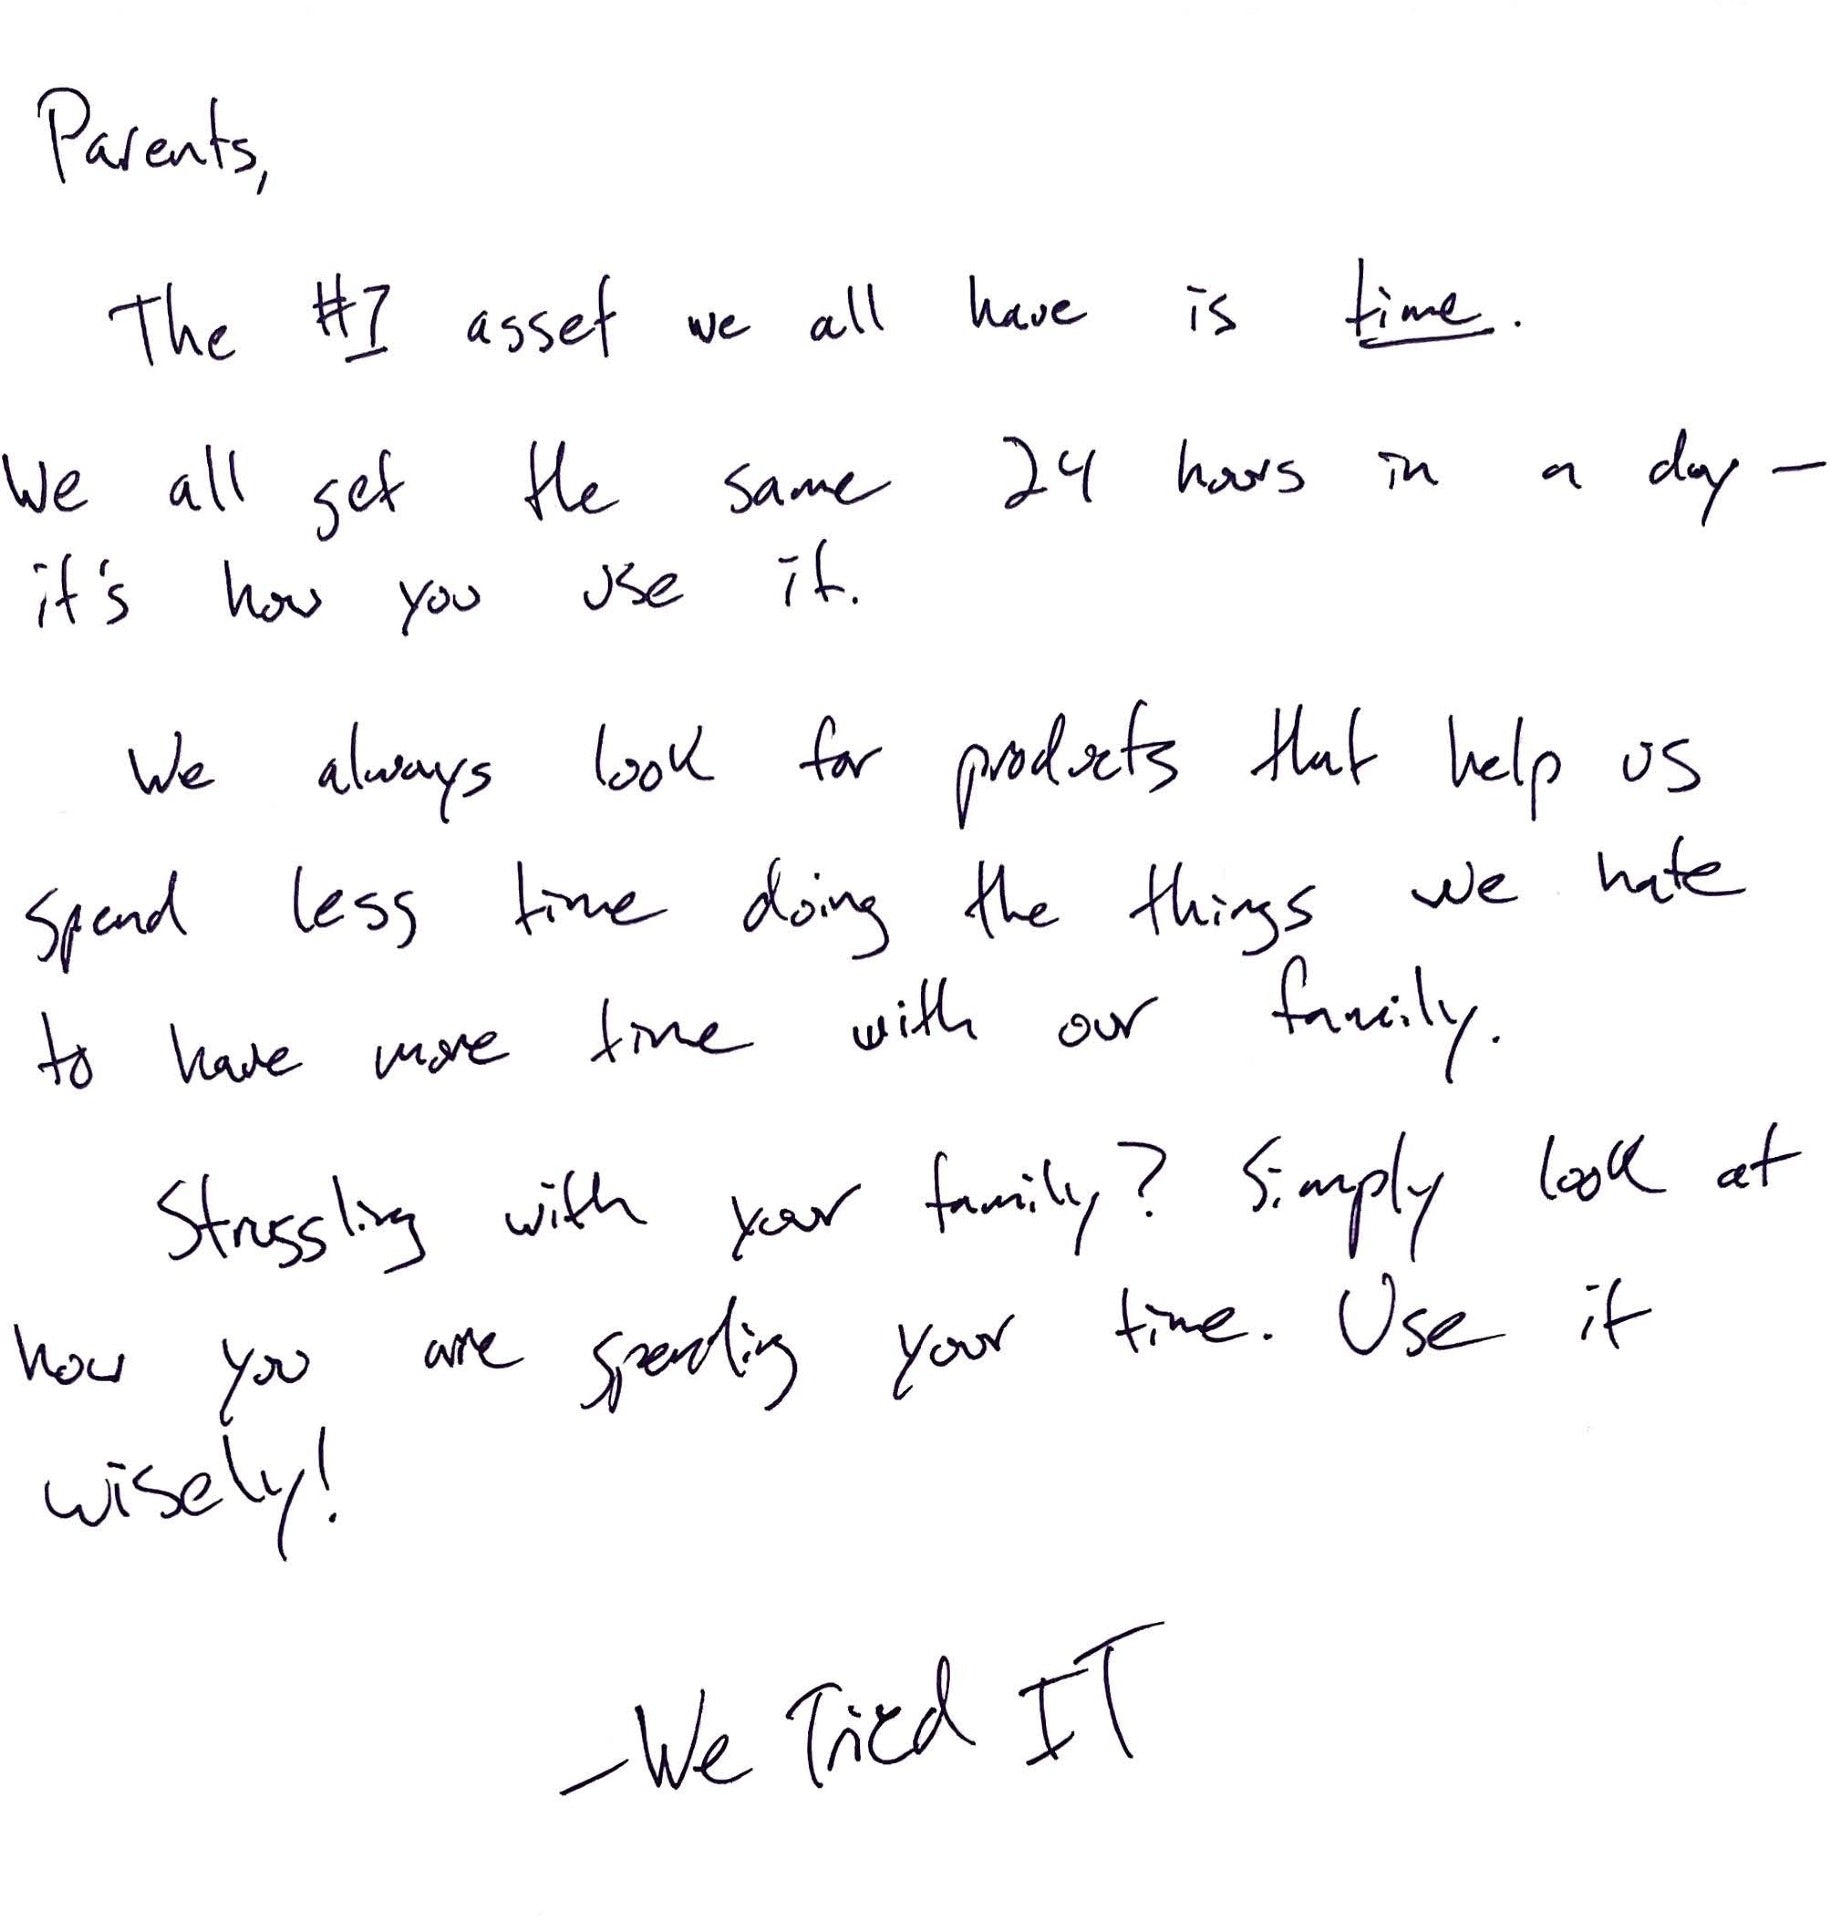 Parents,
The #1 asset we all have is time.
We all get the same 24 hours in a day -
it's how you use it.
We always look for products that help us
spend less time doing the things we hate
to have more time with our family.
Struggling with your family? Simply look at
how you are spending your time. Use it
wisely!
-We Tried IT